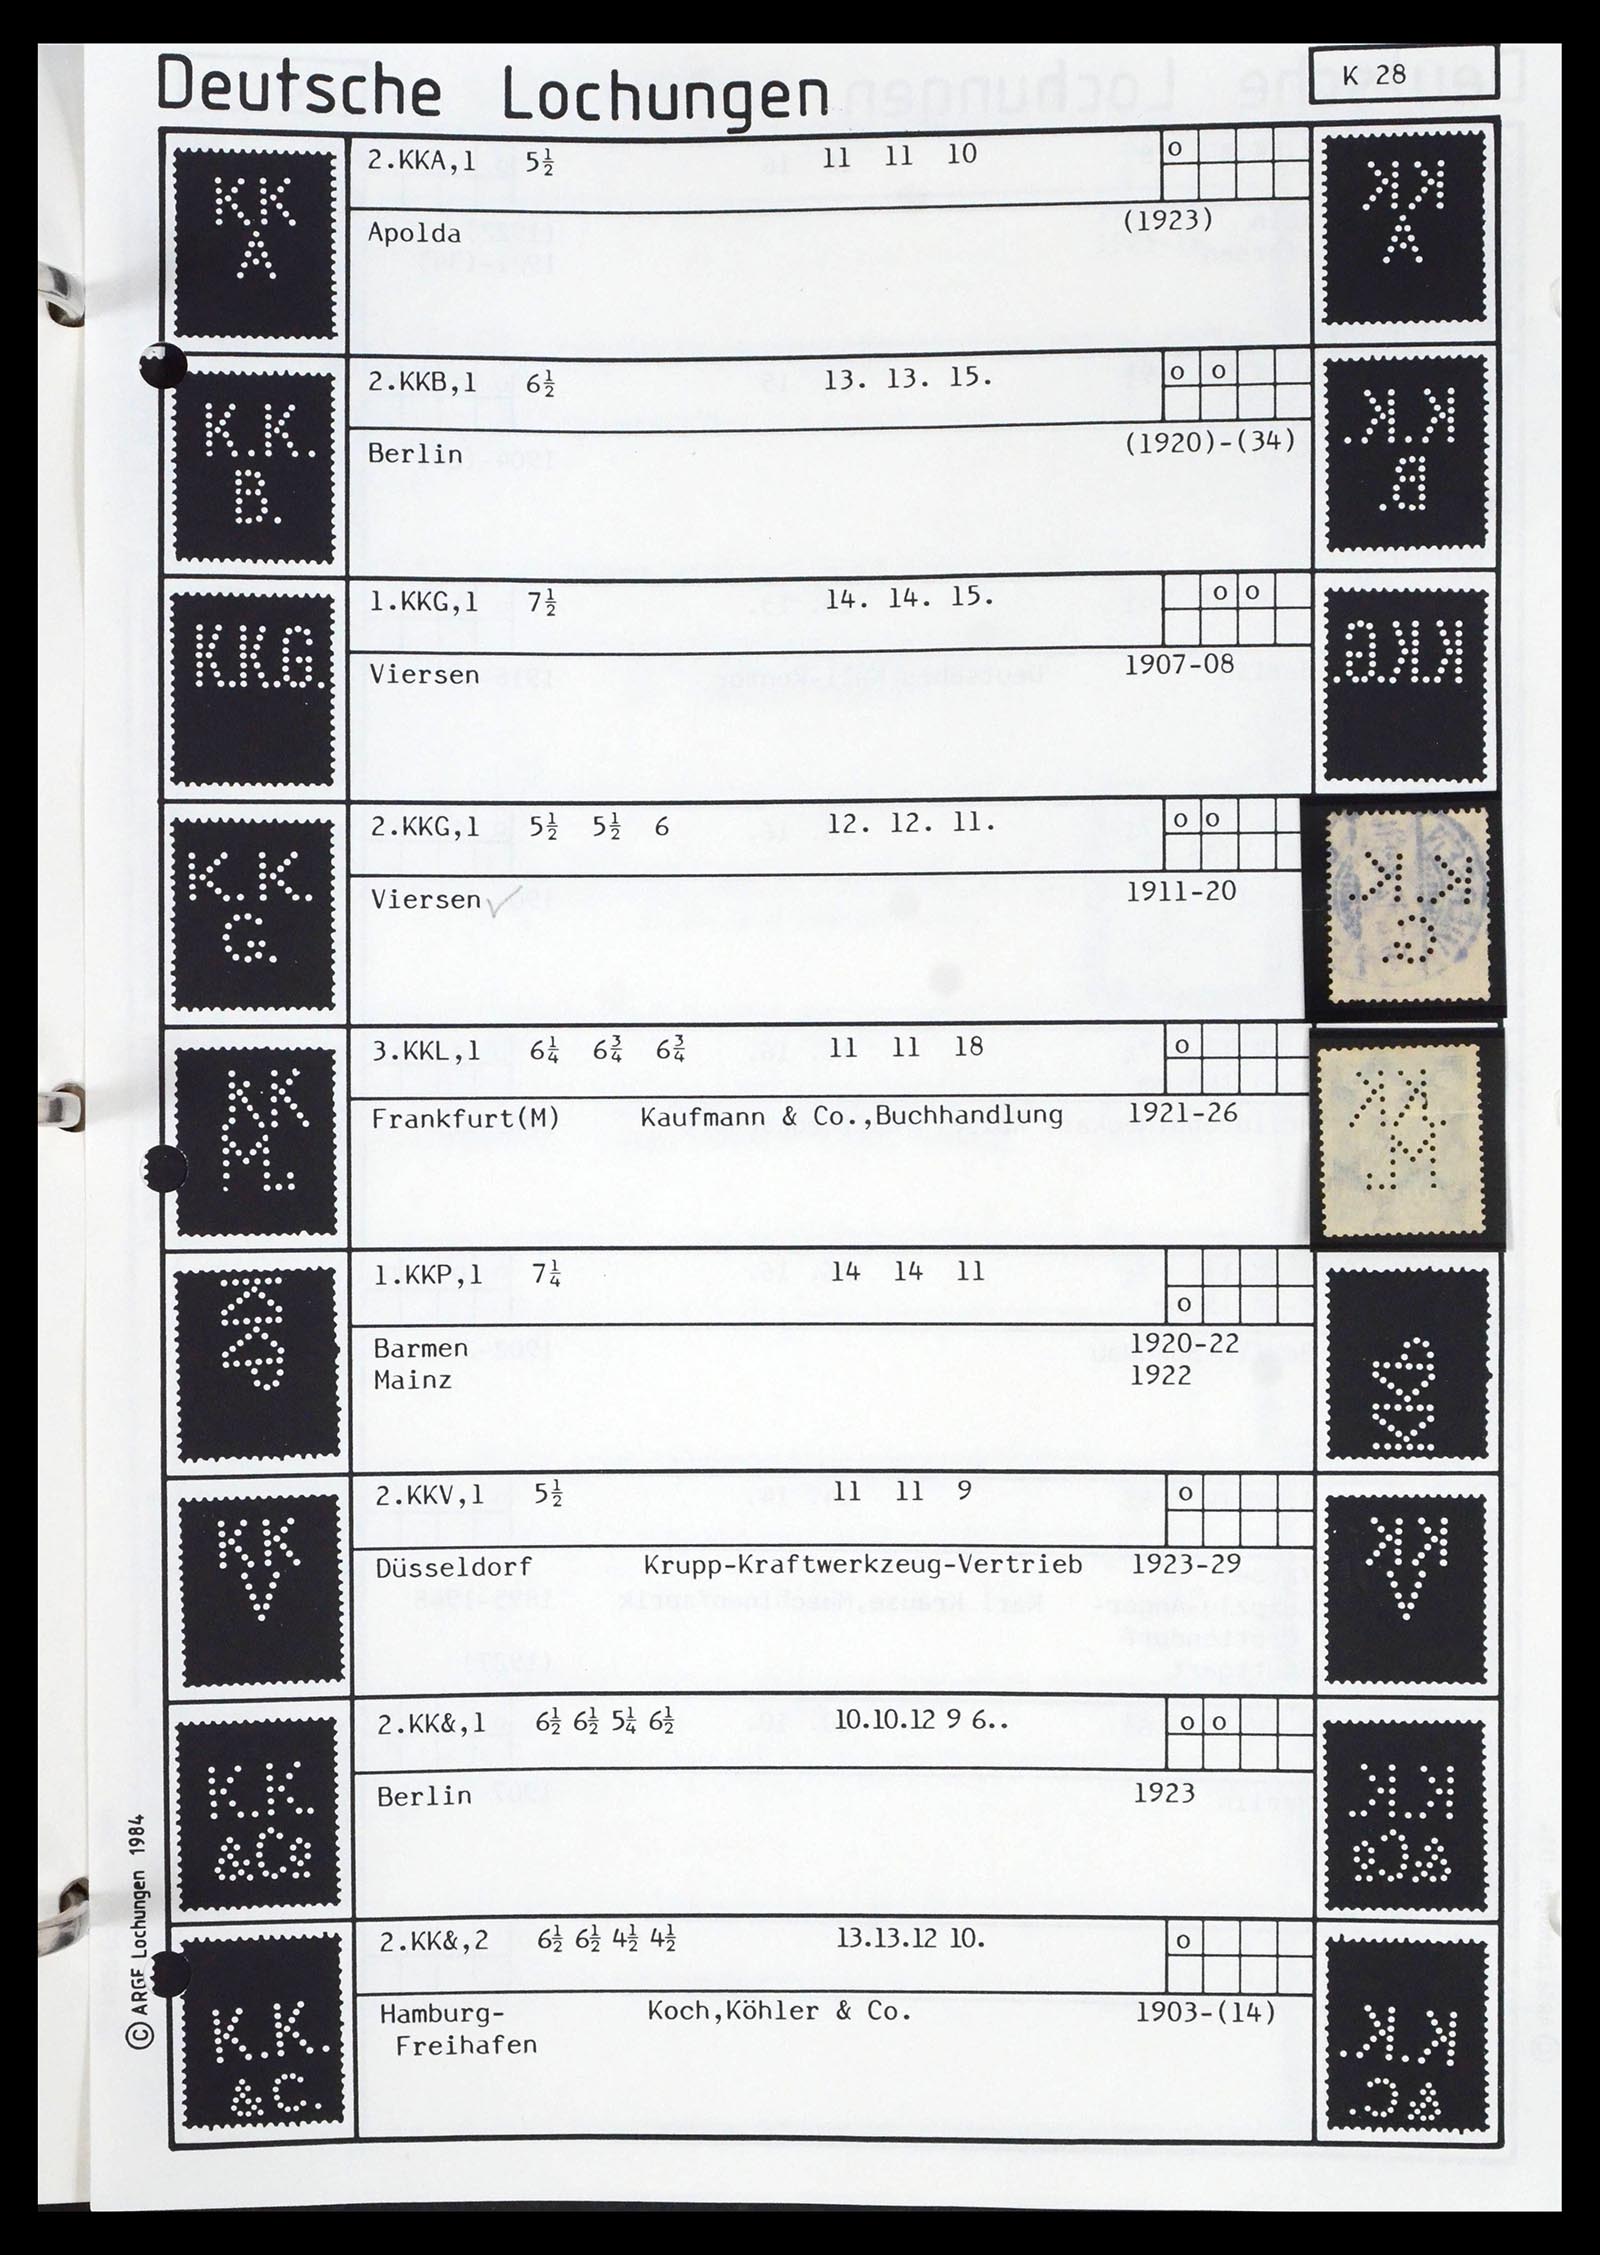 Deutsche Lochungen
K 28
KK
A
2.KKA,1 5½ 11 11 10 o
Apolda (1923)
K.K.
B.
2.KKB,1 6½ 13. 13. 15. o o
Berlin (1920)-(34)
K.K.G.
1.KKG,1 7½ 14. 14. 15. o o
Viersen 1907-08
K.K.
G.
2.KKG,1 5½ 5½ 6 12. 12. 11. o o
Viersen ✓ 1911-20
KK
3.KKL,1 6¼ 6¾ 6¾ 11 11 18 o
Frankfurt(M) Kaufmann & Co.,Buchhandlung 1921-26
KKP
1.KKP,1 7¼ 14 14 11
o
Barmen 1920-22
Mainz 1922
KK
V
2.KKV,1 5½ 11 11 9 o
Düsseldorf Krupp-Kraftwerkzeug-Vertrieb 1923-29
K.K.
&Co
2.KK&,1 6½ 6½ 5¼ 6½ 10.10.12 9 6.. o o
Berlin 1923
K.K.
&C.
2.KK&,2 6½ 6½ 4½ 4½ 13.13.12 10. o
Hamburg- Koch,Köhler & Co. 1903-(14)
Freihafen
© ARGE Lochungen 1984